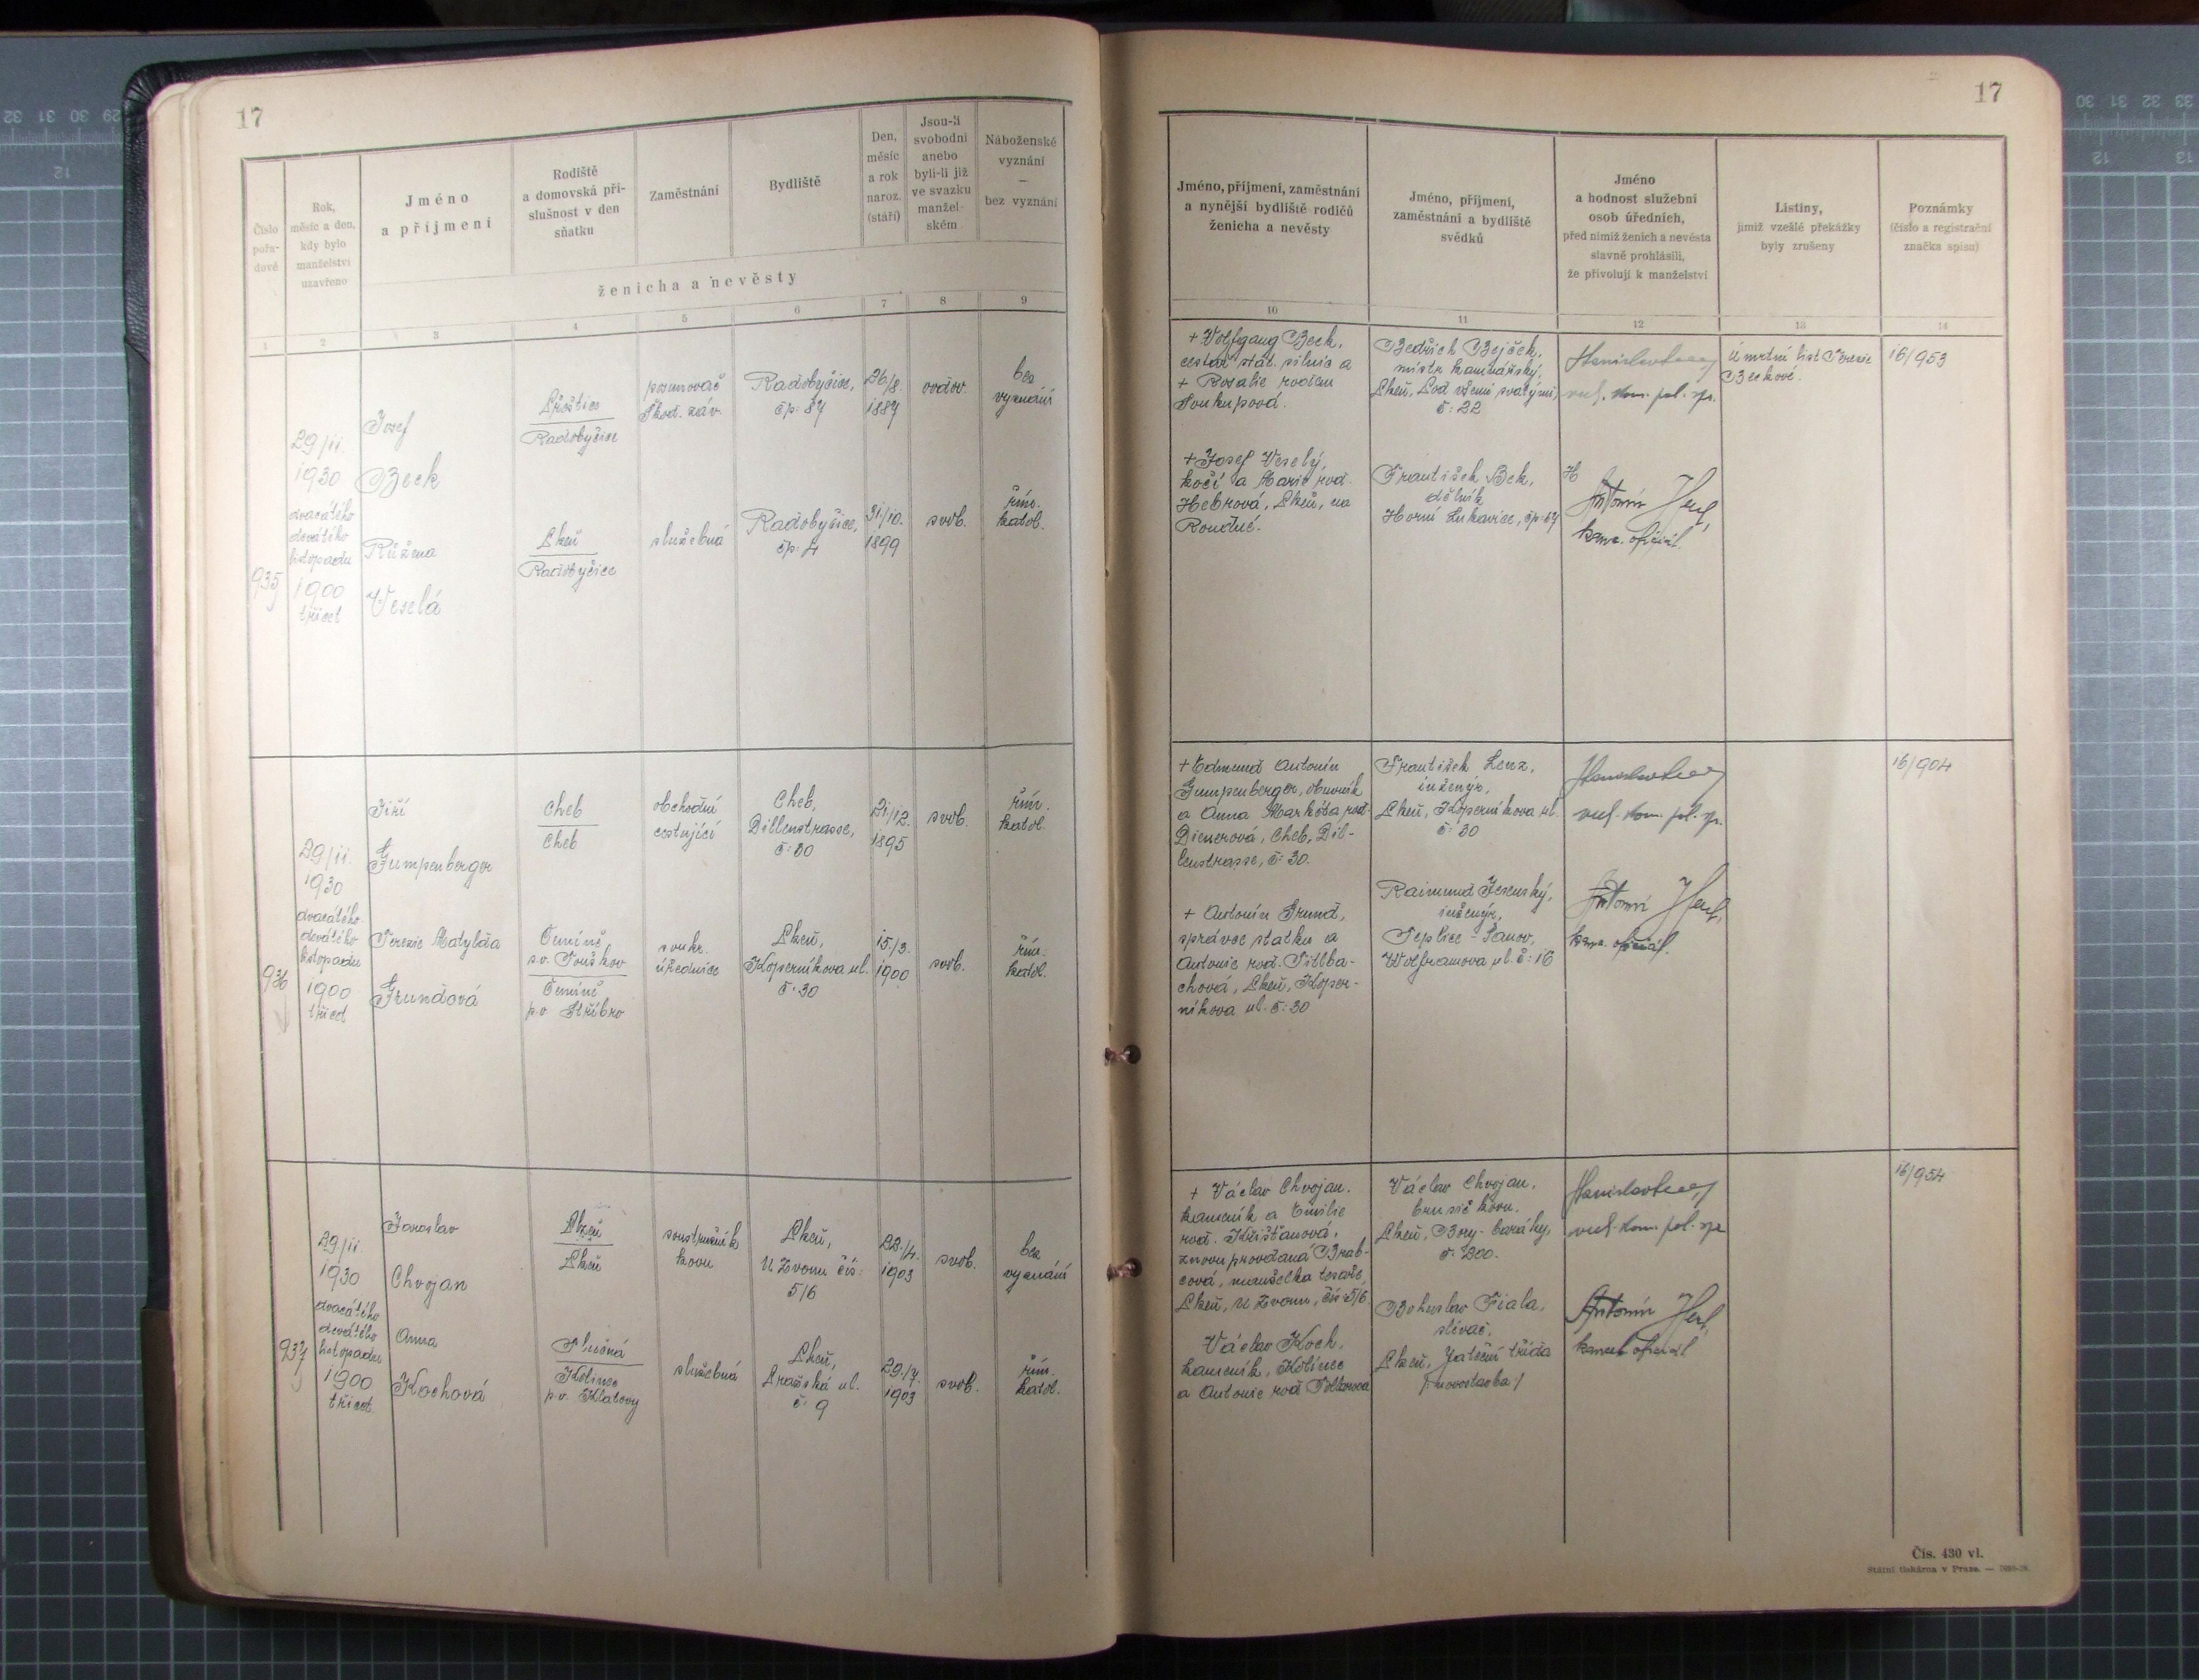 17
Číslo pořadové
Rok, měsíc a den, kdy bylo manželství uzavřeno
Jméno a příjmení
Rodiště a domovská příslušnost v den sňatku
Zaměstnání
Bydliště
Den, měsíc a rok naroz. (stáří)
Jsou-li svobodni anebo byli-li již ve svazku manželském
Náboženské vyznání — bez vyznání
ženicha a nevěsty
1 2 3 4 5 6 7 8 9
935
29/11.
1930
dvacátého
devátého
listopadu
1900
třicet
Josef
Beck
Růžena
Veselá
Radobyčice
Plzeň
Radobyčice
posunovač
Škod. záv.
služebná
Radobyčice,
čp: 87
Radobyčice,
čp: 4
26/8.
1887
31/10.
1899
ovdov.
svob.
bez
vyznání
řím.
katol.
936
29/11.
1930
dvacátého
devátého
listopadu
1900
třicet
Jiří
Gumpenberger
Terezie Matylda
Grundová
Cheb
Cheb
s.o. Touškov
p.o. Stříbro
obchodní
cestující
soukr.
úřednice
Cheb,
Dillenstrasse,
č: 30
Plzeň,
Koperníkova ul.
č: 30
21/12.
1895
15/3.
1900
svob.
svob.
řím.
katol.
řím.
katol.
937
29/11
1930
dvacátého
devátého
listopadu
1900
třicet.
Jaroslav
Chvojan
Anna
Kochová
Plzeň
Plzeň
Kolinec
p.o. Klatovy
soustružník
kovu
služebná
Plzeň,
U Zvonu čís:
5/6
Plzeň,
Pražská ul.
č: 9
22./4.
1903
29./7.
1903
svob.
svob.
bez
vyznání
řím.
katol.
17
Jméno, příjmení, zaměstnání a nynější bydliště rodičů ženicha a nevěsty
Jméno, příjmení, zaměstnání a bydliště svědků
Jméno a hodnost služební osob úředních, před nimiž ženich a nevěsta slavně prohlásili, že přivolují k manželství
Listiny, jimiž vzešlé překážky byly zrušeny
Poznámky (číslo a registrační značka spisu)
10 11 12 13 14
+ Wolfgang Beck,
cestář stát. silnic a
+ Rosalie rozčen
Soukupová.
+ Josef Veselý,
kočí a Marie rod.
Hobrová, Plzeň, na
Roudné.
Bedřich Bejček,
mistr kamnářský,
Plzeň, Pod všemi svatými,
č: 22
František Bek,
dělník
Horní Lukavice, čp: 57
H
Antonín
kanc. oficiál.
Úmrtní list Terezie
Beckové.
16/953
+ Edmund Antonín
Gumpenberger, obuvník
a Anna Markéta rod.
Dienerová, Cheb, Dil-
lenstrasse, č: 30.
+ Antonín Grund,
správce statku a
Antonie rod. Tillba-
chová, Plzeň, Koper-
níkova ul. č: 30
František Lenz,
inženýr,
Plzeň, Koperníkova ul.
č: 30
Raimund Jesenský,
inženýr,
Teplice - Šanov,
Wolframova ul. č: 16
Antonín
kanc. oficiál.
16/904
+ Václav Chvojan,
kameník a Emilie
rod. Křišťanová,
znovu provdaná Brab-
cová, manželka tesaře,
Plzeň, U Zvonu, čís: 5/6
Václav Koch,
kameník, Kolinec
a Antonie rod.
Václav Chvojan,
brusič kovu,
Plzeň, Bory - baráky,
č: 200.
Bohuslav Fiala,
slévač,
Plzeň, Jateční třída
/novostavba/
Antonín
kanc. oficiál
16/954
Čís. 430 vl.
Státní tiskárna v Praze. —